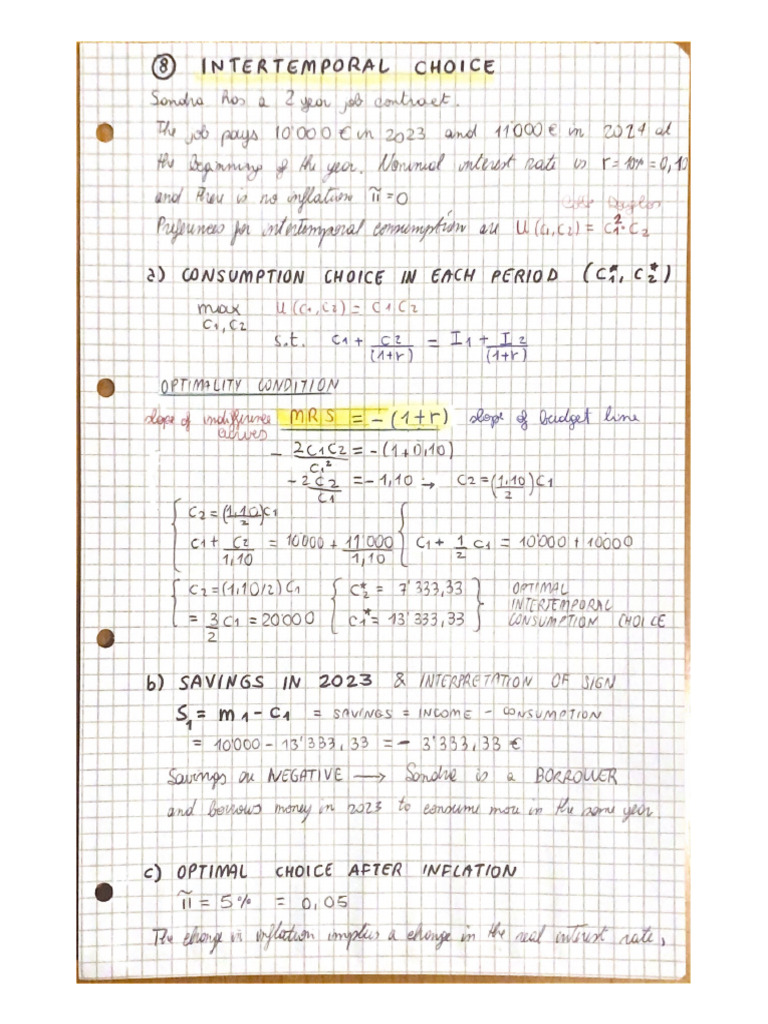 ⑧ INTERTEMPORAL CHOICE
Sondra has a 2 year job contract.
The job pays 10'000 € in 2023 and 11'000 € in 2024 at
the beginning of the year. Nominal interest rate is r = 10% = 0,10
and there is no inflation π̃ = 0
Cobb Douglas
Preferences for intertemporal consumption are U(c1,c2) = c1²·c2
a) CONSUMPTION CHOICE IN EACH PERIOD (C1*, C2*)
max U(c1,c2) = c1c2
c1,c2
s.t. c1 + c2/(1+r) = I1 + I2/(1+r)
OPTIMALITY CONDITION
slope of indifference curves MRS = -(1+r) slope of budget line
- 2c1c2/c1² = -(1+0,10)
-2c2/c1 = -1,10 → c2 = (1,10/2)c1
c2 = (1,10/2)c1
c1 + c2/1,10 = 10'000 + 11'000/1,10 c1 + 1/2 c1 = 10'000 + 10000
c2 = (1,10/2)c1 c2* = 7'333,33 OPTIMAL
INTERTEMPORAL
= 3/2 c1 = 20'000 c1* = 13'333,33 CONSUMPTION CHOICE
b) SAVINGS IN 2023 & INTERPRETATION OF SIGN
S1 = m1 - c1 = SAVINGS = INCOME - CONSUMPTION
= 10'000 - 13'333,33 = - 3'333,33 €
Savings are NEGATIVE → Sondra is a BORROWER
and borrows money in 2023 to consume more in the same year.
c) OPTIMAL CHOICE AFTER INFLATION
π̃ = 5% = 0,05
The change in inflation implies a change in the real interest rate,